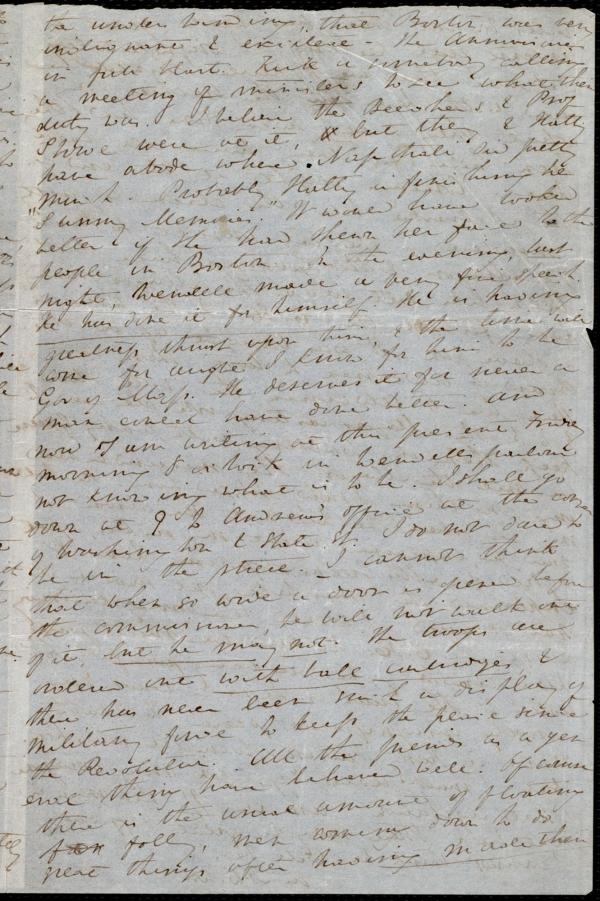 the understanding, that Boston was very
indignant & excited - The Announcer
in full blast. Kirk a somebody calling
a meeting of ministers to see what their
duty was. I believe the Beechers & Prof
Stowe were at it, & but they & Hatty
have abode where Naphtali did pretty
much. Probably Hatty is finishing he
"Sunny Memories." It would have looked
better if she had shown her face to the
people in Boston. In the evening, last
night, Wendell made a very fine speech
He has done it for himself. He is having
greatness thrust upon him, & the time will
come for aught I know for him to be
Gov of Mass. He deserves it for never a
man could have done better. And
now I am writing at this present Friday
morning 8 o'clock in Wendell's parlour
not knowing what is to be. I shall go
down at 9 to Andrew's office at the corner
of Washington & State St. I do not dare to
be in the street. I cannot think
that when so wide a door is opened before
the commissioner he will not walk out
of it, but he may not. The troops are
ordered out with ball cartridges &
there has never been such a display of
military force to keep the peace since
the Revolution. All the friends as a gen
eral thing have behaved well. Of course
there is the usual amount of floating
folly, men coming down to do
great things after having made their